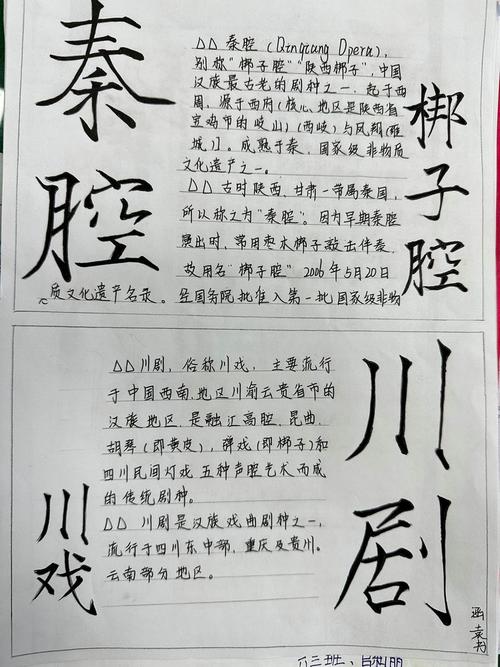 秦腔
△△ 秦腔 (Qinqiang Opera),
别称“梆子腔”“陕西梆子”,中国
汉族最古老的剧种之一,起于西
周,源于西府(核心地区是陕西省
宝鸡市的岐山)(西岐)与凤翔(雍
城)]。成熟于秦。国家级非物质
文化遗产之一。
△△ 古时陕西、甘肃一带属秦国,
所以称之为“秦腔”。因为早期秦腔
演出时,常用枣木梆子敲击伴奏,
故用名“梆子腔” 2006年5月20日
经国务院批准入第一批国家级非物
质文化遗产名录。
梆子腔
△△川剧,俗称川戏,主要流行
于中国西南地区川渝云贵省市的
汉族地区,是融汇高腔、昆曲、
胡琴(即黄皮),弹戏(即梆子)和
四川民间灯戏五种声腔艺术而成
的传统剧种。
△△ 川剧是汉族戏曲剧种之一,
流行于四川东中部、重庆及贵州、
云南部分地区。
川剧
川戏